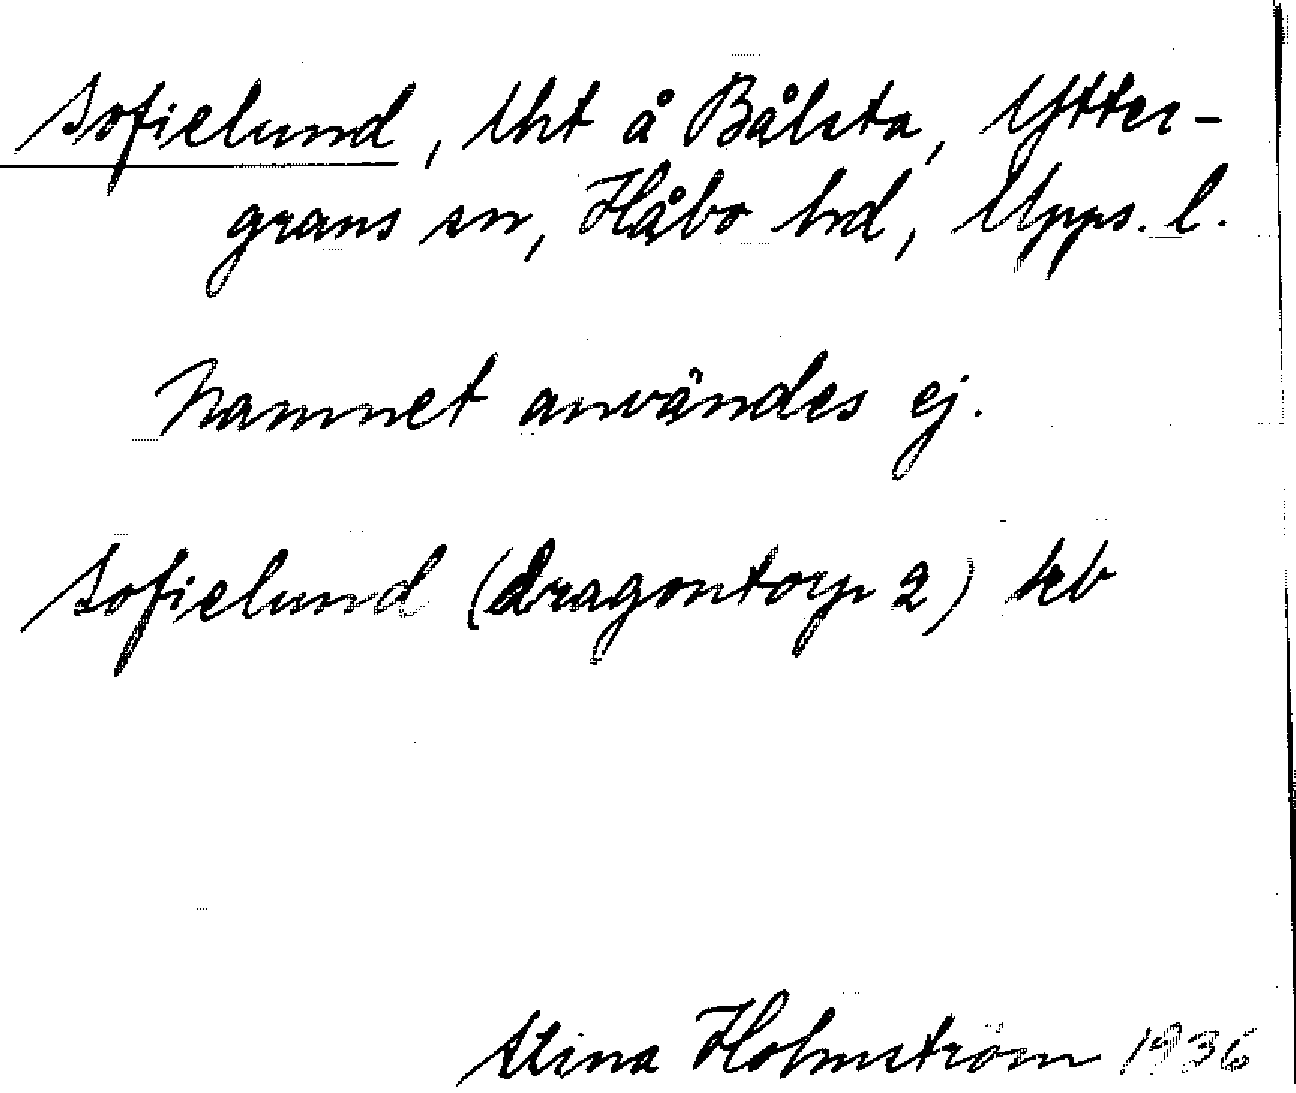 Sofielund, lht å Bålsta, Ytter-
grans sn, Håbo hd, Upps. l.
Namnet användes ej.
Sofielund (dragontorp 2) kb
Stina Holmström 1936